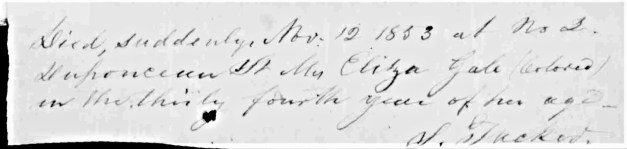 Died, suddenly, Nov. 12 1853 at No 2.
Duponceau St Mrs Eliza Gale (Colored)
in the thirty fourth year of her age –
S. Tucker.